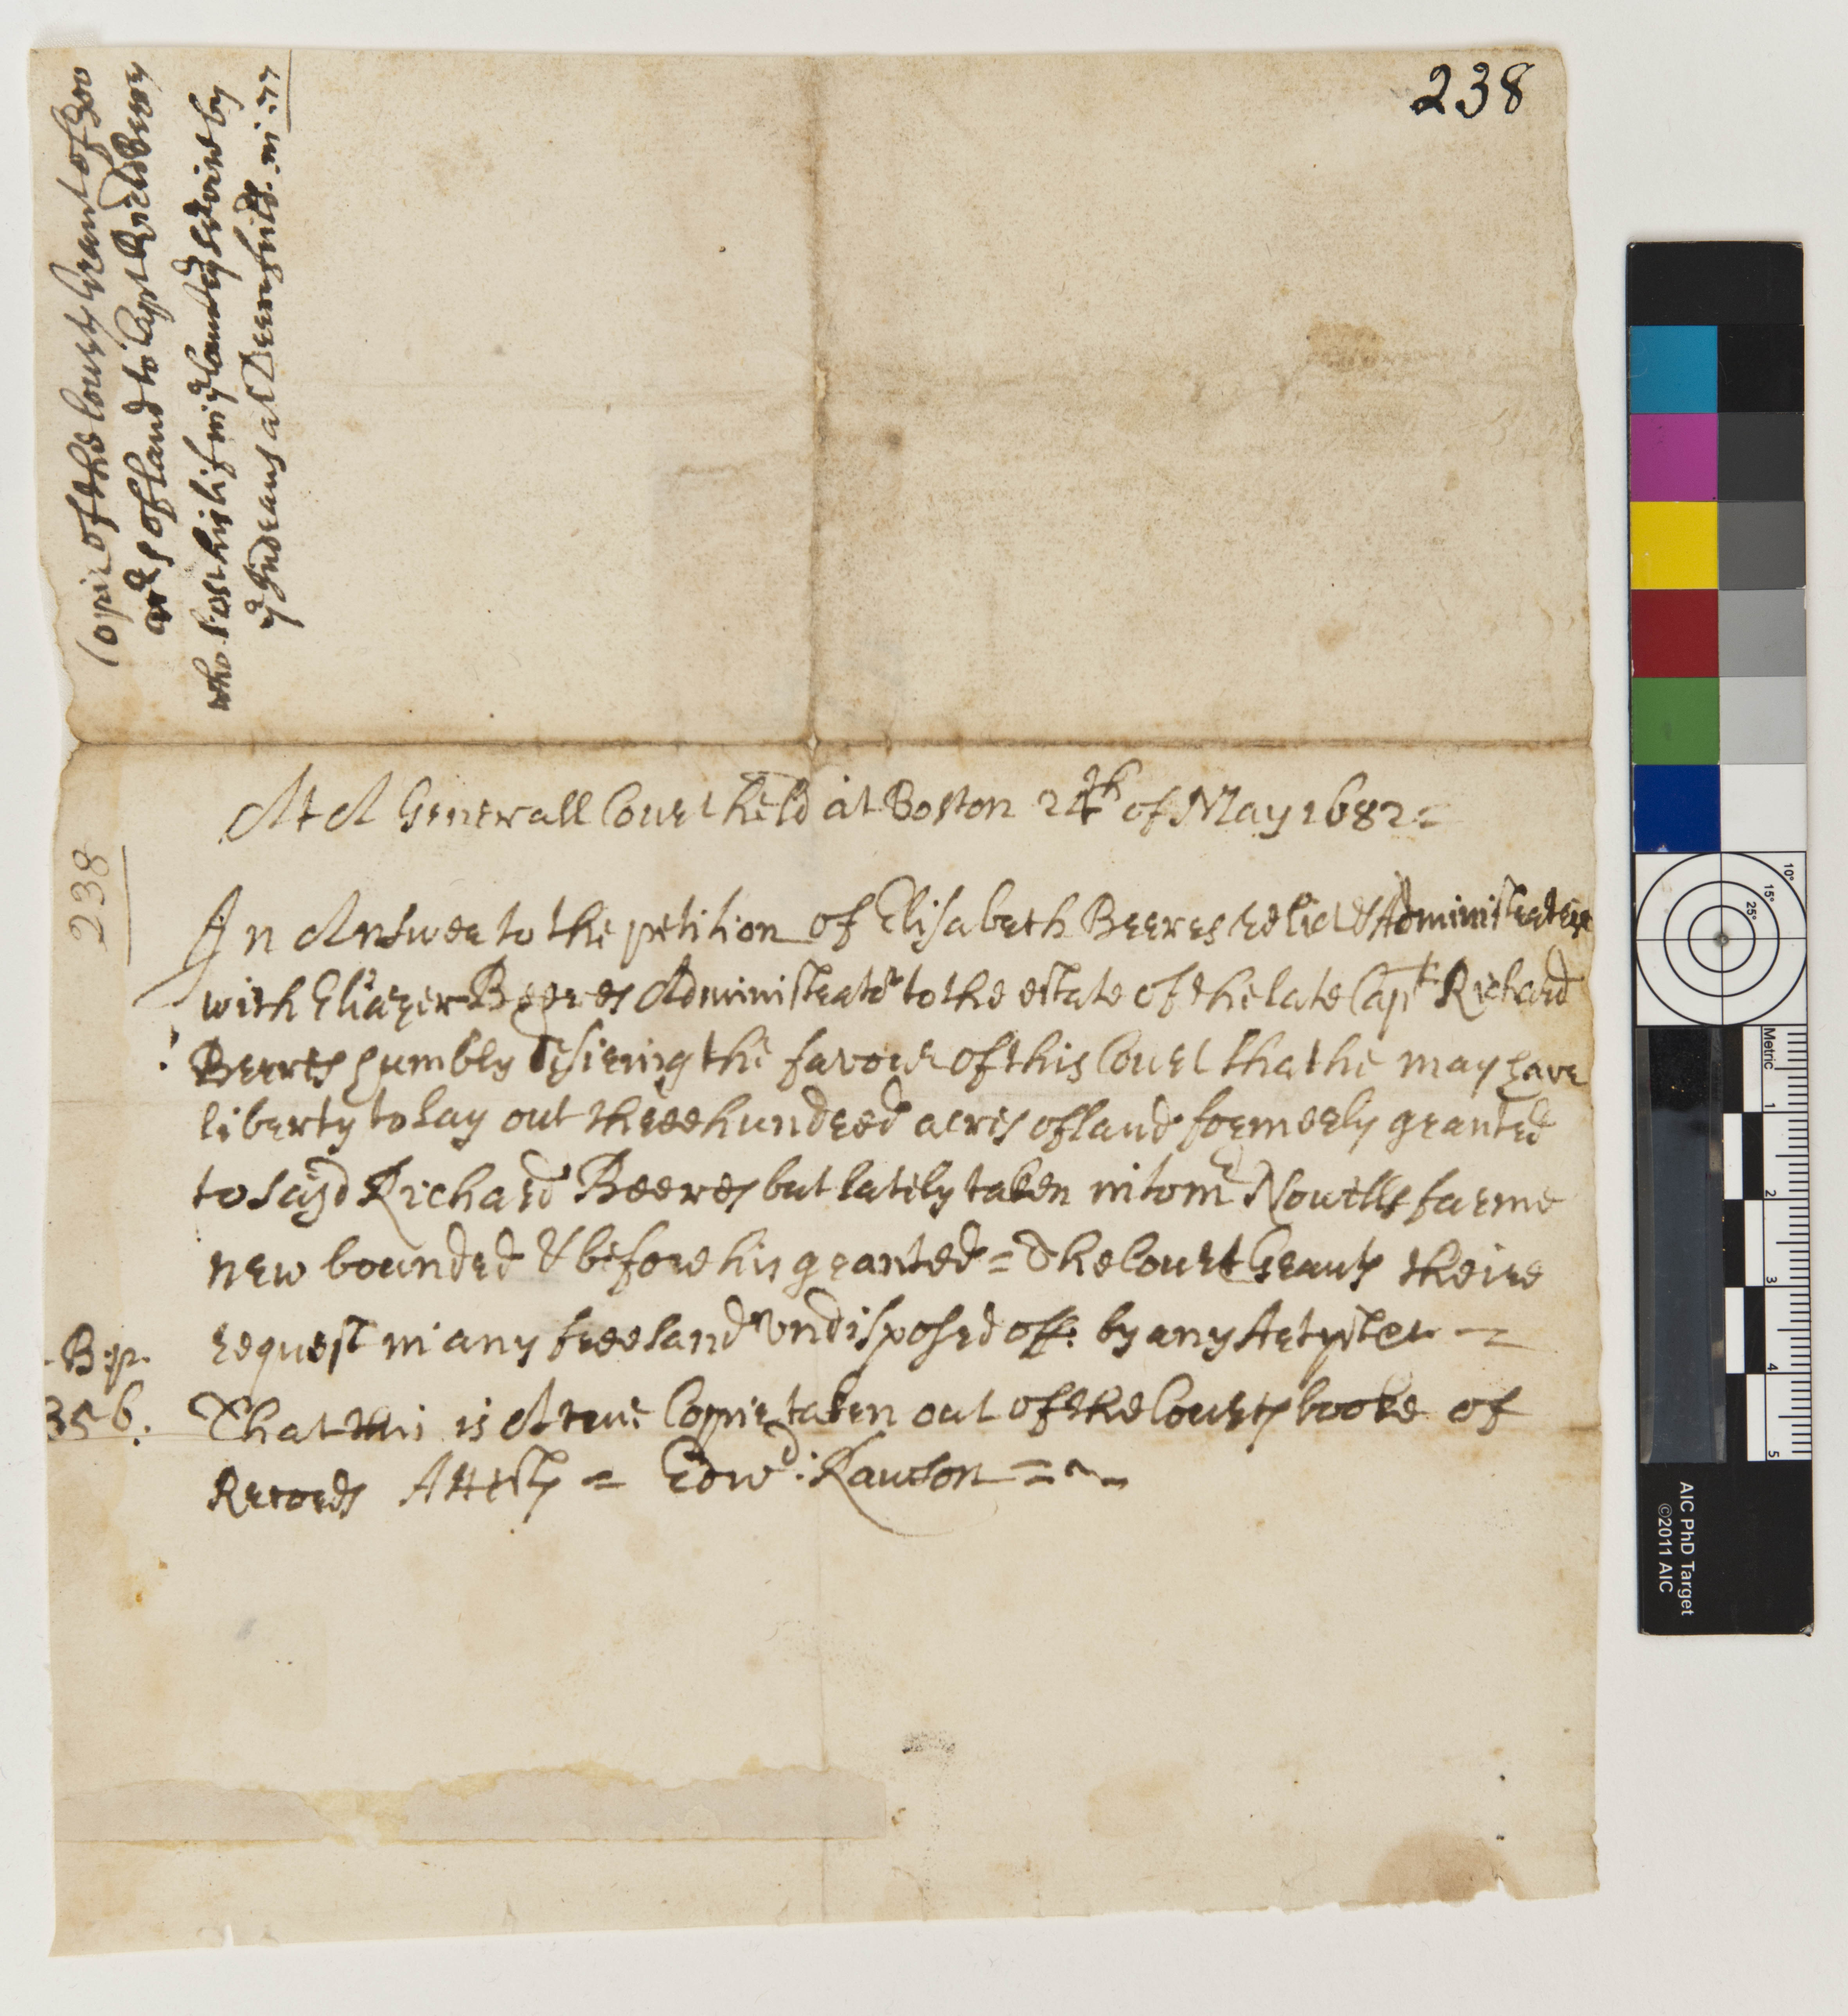 238
Copie of the Courts Grant of 300
acrs of Land to Capt Richd Beers
who lost his life in ye Countrys Service by
ye Indeans at Deerfeild. in :77
At A Generall Court held at Boston 24th of May 1682=
238
In Answer to the petition of Elisabeth Beeres relict & Administratrix
with Eliazer Beeres Administrator to the estate of the late Capt Richard
Beeres humbly desiring the favour of this Court that he may have
liberty to lay out three hundred acres of land formerly granted
to sayd Richard Beeres but lately taken into mr Nowells farme
new bounded & before his granted = The Court Grants theire
request in any free land vndisposed off: by any Artyster =
B: p.
356:
That this is A true Copie taken out of the Courts booke of
Records Attests = Edwd: Rawson =
AIC PhD Target
©2011 AIC
Metric
1
2
3
4
5
10°
15°
25°